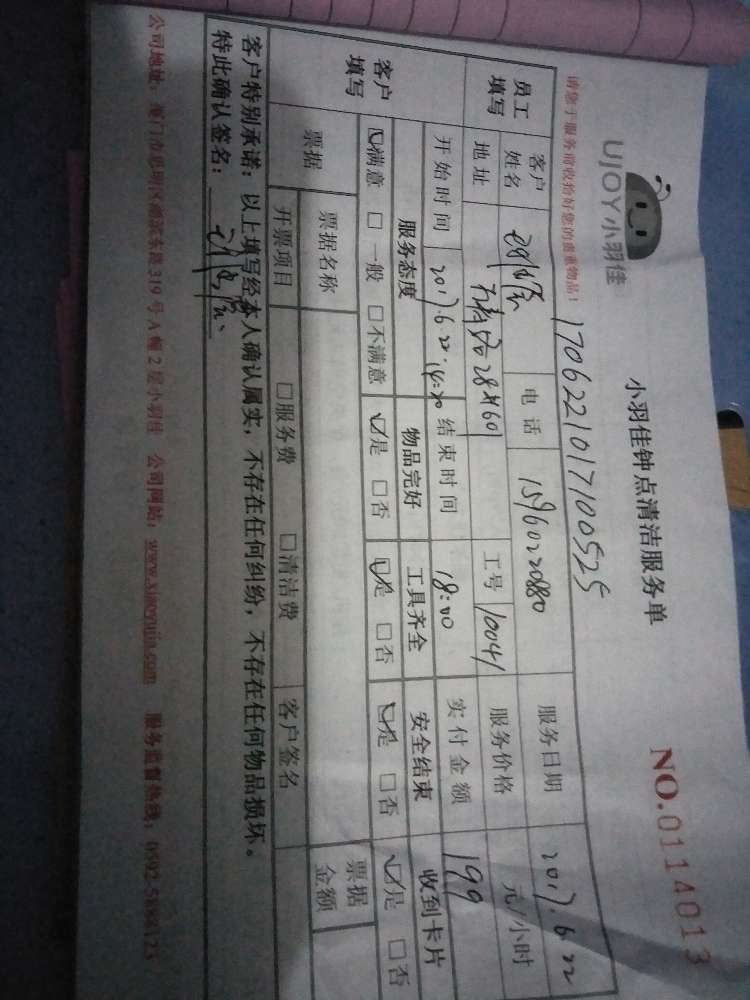 UJOY小羽佳
小羽佳钟点清洁服务单
NO.0114013
请您于服务前收拾好您的贵重物品！
1706221017100525
员工填写
客户姓名
电话 15960220880
服务日期 2017.6.22
地址 28#601
工号 10041
服务价格 元/小时
开始时间 2017.6.22.14:20
结束时间 18:00
实付金额 199
客户填写
服务态度 物品完好 工具齐全 安全结束 收到卡片
☑满意 □一般 □不满意 ☑是 □否 ☑是 □否 ☑是 □否 ☑是 □否
票据 票据名称 票据金额
开票项目 □服务费 □清洁费 客户签名
客户特别承诺：以上填写经本人确认属实，不存在任何纠纷，不存在任何物品损坏。
特此确认签名：
公司地址：厦门市思明区湖滨东路319号A幢2层小羽佳 公司网站：www.xiaoyujia.com 服务监督热线：0592-5888123